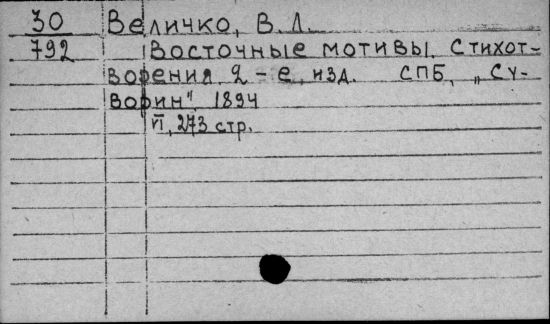 30 Величко, В. Л.
792 Восточные мотивы. Стихот-
ворения 2-е, изд. СПБ, „Су-
ворин" 1894
VI, 273 стр.